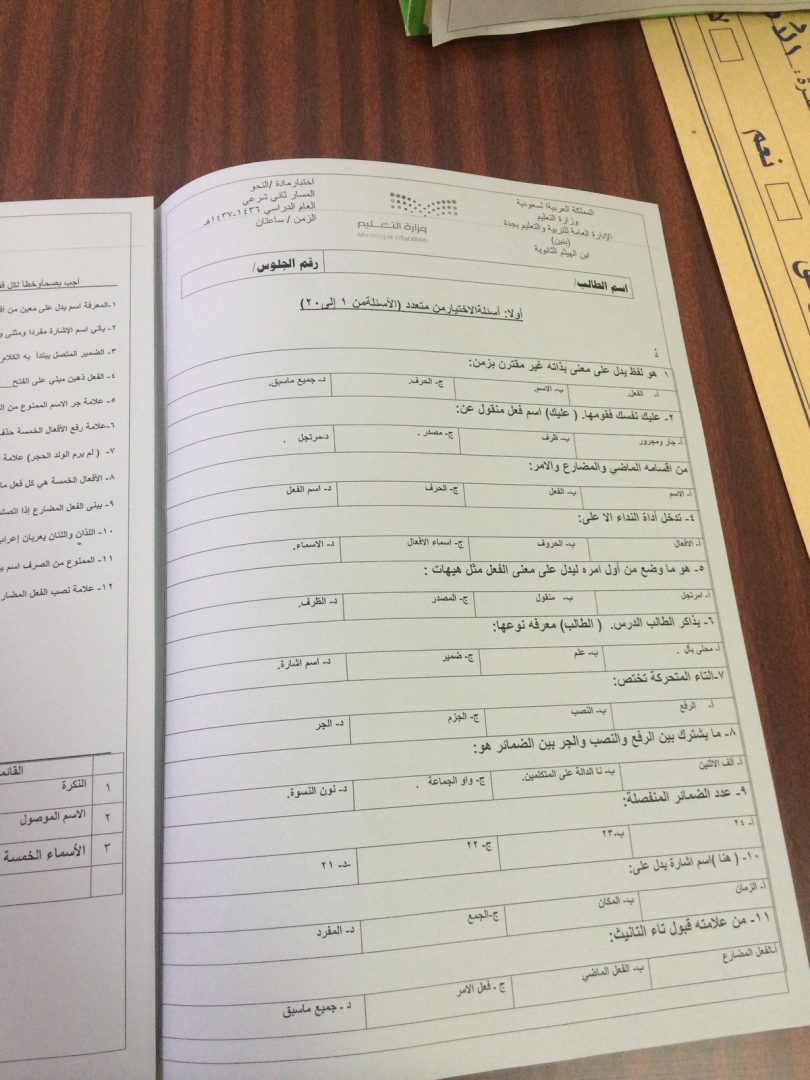 المملكة العربية السعودية
وزارة التعليم
الإدارة العامة للتربية والتعليم بجدة
(بنين)
ابن الهيثم الثانوية
وزارة التعليم
Ministry of Education
اختبار مادة /النحو
المسار ثاني شرعي
العام الدراسي ١٤٣٦-١٤٣٧هـ
الزمن / ساعتان
اسم الطالب/
رقم الجلوس/
أولا: أسئلة الاختيار من متعدد (الأسئلة من ١ إلى ٢٠)
:
١ هو لفظ يدل على معنى بذاته غير مقترن بزمن:
أ- الفعل. ب- الاسم. ج- الحرف. د- جميع ماسبق.
٢- عليك نفسك فقومها. (عليك) اسم فعل منقول عن:
أ- جار ومجرور ب- ظرف ج- مصدر . د-مرتجل .
من اقسامه الماضي والمضارع والامر:
أ- الاسم ب- الفعل ج- الحرف د- اسم الفعل
٤- تدخل أداة النداء الا على:
أ- الافعال ب- الحروف ج- اسماء الافعال د- الاسماء.
٥- هو ما وضع من أول امره ليدل على معنى الفعل مثل هيهات :
أ- امرتجل ب- منقول ج- المصدر د- الظرف.
٦- يذاكر الطالب الدرس. ( الطالب) معرفه نوعها:
أ- محلى بأل . ب- علم ج- ضمير د- اسم اشارة.
٧-التاء المتحركة تختص:
أ- الرفع ب- النصب ج- الجزم د- الجر
٨- ما يشترك بين الرفع والنصب والجر بين الضمائر هو:
أ- ألف الاثنين ب- نا الدالة على المتكلمين. ج- واو الجماعة . د- نون النسوة.
٩- عدد الضمائر المنفصلة:
أ- ٢٤ ب-٢٣ ج- ٢٢ -د- ٢١
١٠- ( هنا )اسم اشارة يدل على:
أ- الزمان ب- المكان ج-الجمع د- المفرد
١١- من علامته قبول تاء التانيث:
أ-الفعل المضارع ب- الفعل الماضي ج - فعل الامر د - جميع ماسبق
أجب بصح أوخطأ لكل
١-المعرفة اسم يدل على معين من
٢- يأتي اسم الإشارة مفردا ومثنى
٣- الضمير المتصل يبتدأ به الكلام
٤- الفعل ذهبن مبني على الفتح
٥- علامة جر الاسم الممنوع من
٦-علامة رفع الأفعال الخمسة
٧- ( لم يرم الولد الحجر) علامة
٨- الأفعال الخمسة هي كل فعل
٩- يبنى الفعل المضارع إذا
١٠- اللذان واللتان يعربان
١١- الممنوع من الصرف اسم
١٢- علامة نصب الفعل
١ النكرة
٢ الاسم الموصول
٣ الأسماء الخمسة
نعم